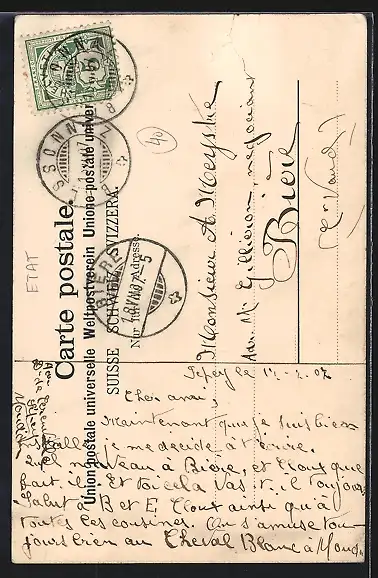 Carte postale.
Union postale universelle Weltpostverein Unione postale univer
SUISSE SCHWEIZ SVIZZERA.
Nur für die Adresse.
Monsieur A. Meystre
Adr. Mr Gillieron, négociant
Bière
Ct Vaud
5
BIÈRE
40
ETAT
le 17. 7. 07
Cher ami,
Maintenant que je suis bien
je me decide à t'écrire.
nouveau à Bière, et Cloux que
fait il. Et toi cela va-t-il toujours
Salut à B et E Cloux ainsi qu'à
toutes les cousines. On s'amuse tou
jours bien au Cheval Blanc à Moud